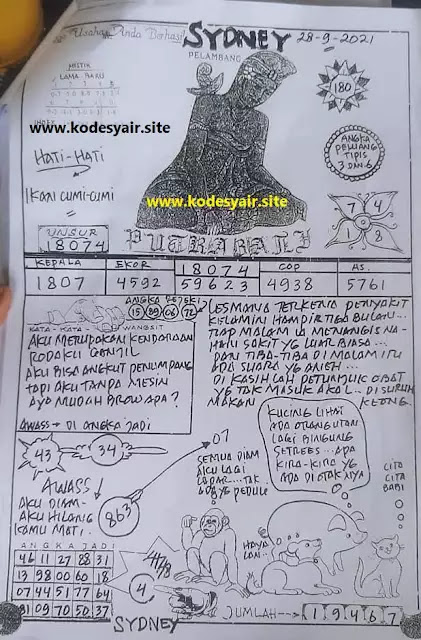 Usaha Anda Berhasil
SYDNEY
28-9-2021
PELAMBANG
MISTIK
LAMA BARU
INDEX
www.kodesyair.site
180
HATI-HATI
ANGKA
PELUANG
TIPIS
3 DAN 6
IKAN CUMI-CUMI
=
www.kodesyair.site
7 4
1 8
UNSUR
18074
PUTRABALI
KEPALA EKOR 18074 COP AS.
1807 4592 59623 4938 5761
ANGKA REJEKI
15 89 06 72
KATA-KATA WANGSIT
AKU MERUPAKAN KENDARAAN
RODAKU GANJIL
AKU BISA ANGKUT PENUMPANG
TAPI AKU TANPA MESIN
AYO MUDAH BROW APA ?
AWASS → DI ANGKA JADI
LESMANA TERKENA PENYAKIT
KELAMIN HAMPIR TIGA BULAN...
TIAP MALAM IA MENANGIS NA-
HAN SAKIT YG LUAR BIASA...
DAN TIBA-TIBA DI MALAM ITU
ADA SUARA YG ANEH...
DI KASIHLAH PETUNJUK OBAT
YG TAK MASUK AKAL.. DI SURUH
MAKAN KLENG.
43
34
07
SEMUA DIAM
AKU LAGI
LAPAR...TAK
ADA YG PEDULI
KUCING LIHAT
ADA ORANGUTAN
LAGI BINGUNG
SETREES...APA
KIRA-KIRA YG
ADA DI OTAKNYA
CITA
CITA
BABI
AWASS
AKU DIAM-
AKU HILANG
KAMU MATI.
863
HAYA
LAN..
ANGKA JADI
46 11 27 88 31
13 98 00 60 18
07 44 51 77 64
81 09 70 50 37
4
JUMLAH → 19467
SYDNEY